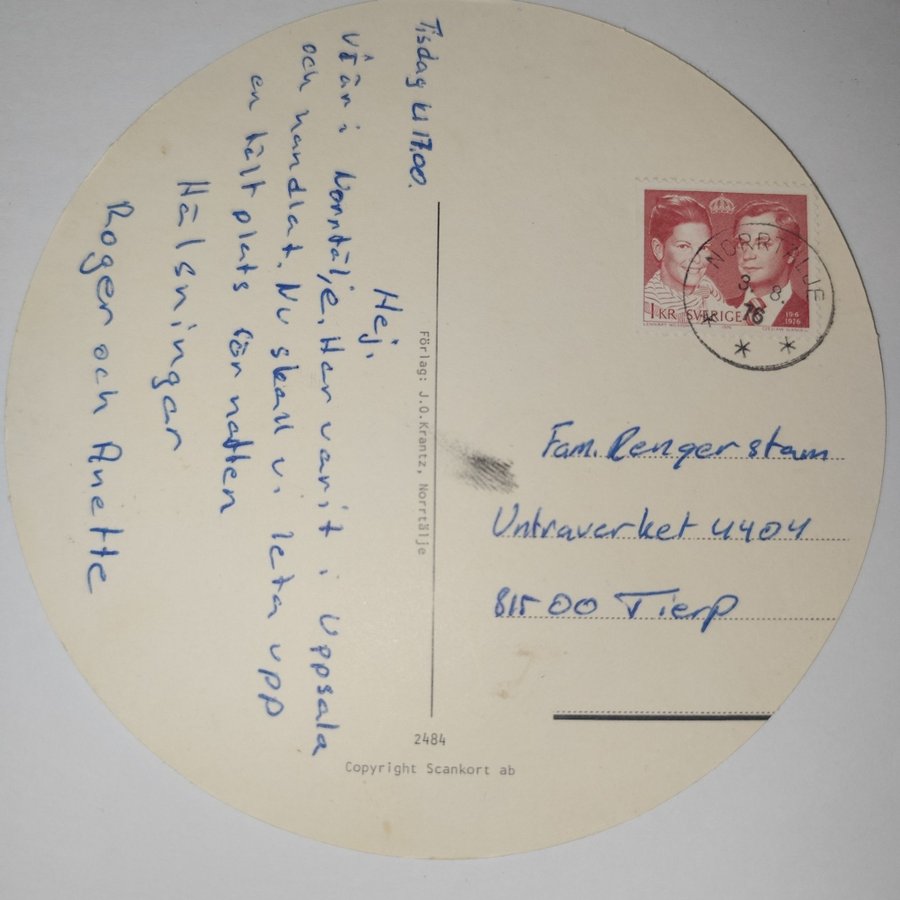 Tisdag kl 17.00.
Hej.
Vi är i Norrtälje. Har varit i Uppsala
och handlat. Nu skall vi leta upp
en tält plats för natten
Hälsningar
Roger och Anette
Förlag: J.O.Krantz, Norrtälje
NORRTÄLJE
3. 8.
76
1 KR SVERIGE
19 6/6
1976
Fam. Rengerstam
Untraverket 4404
815 00 Tierp
2484
Copyright Scankort ab